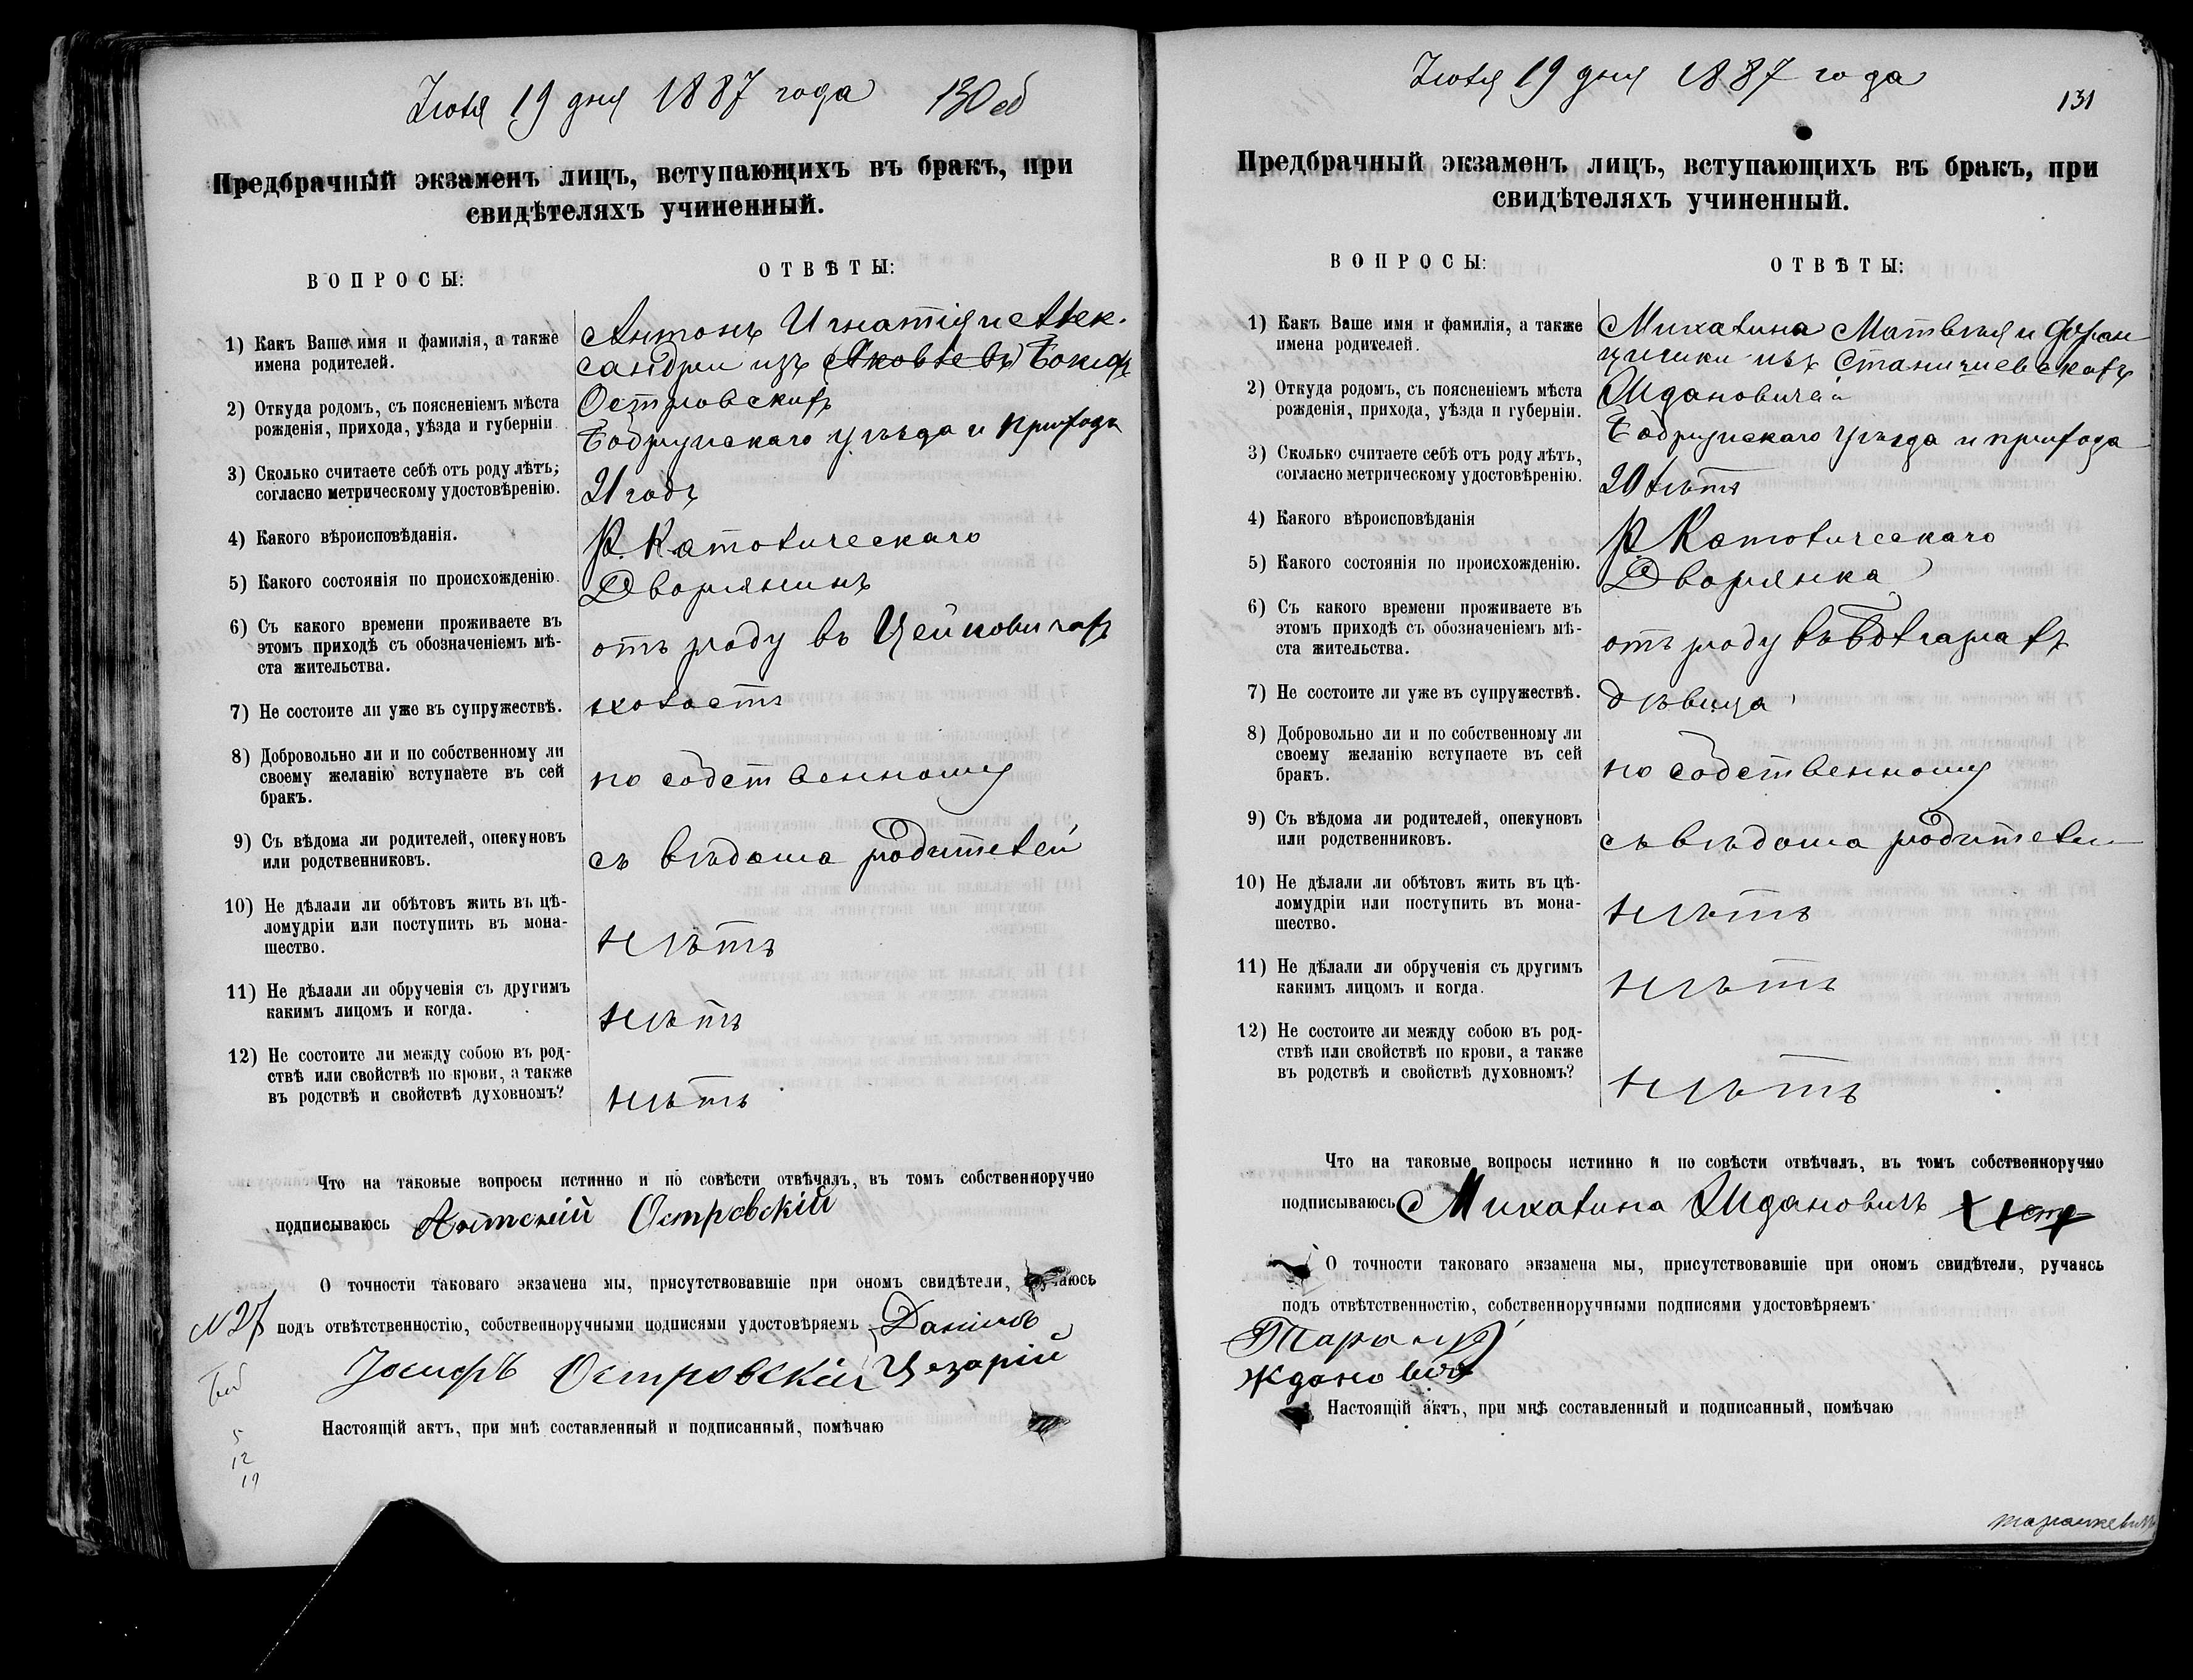 Іюля 19 дня 1887 года 130об
Предбрачный экзаменъ лицъ, вступающихъ въ бракъ, при
свидѣтеляхъ учиненный.
ВОПРОСЫ:
ОТВѢТЫ:
1) Какъ Ваше имя и фамилія, а также
имена родителей.
Антонъ Игнатія и Алек-
сандры изъ Яковлевъ
Островскихъ
2) Откуда родомъ, съ поясненіемъ мѣста
рожденія, прихода, уѣзда и губерніи
Бобруйскаго уѣзда и прихода
3) Сколько считаете себѣ отъ роду лѣтъ,
согласно метрическому удостовѣренію.
21 годъ
4) Какого вѣроисповѣданія.
Р. Католическаго
5) Какого состоянія по происхожденію.
Дворянинъ
6) Съ какого времени проживаете въ
этомъ приходѣ съ обозначеніемъ мѣ-
ста жительства.
отъ роду въ Цейковичахъ
7) Не состоите ли уже въ супружествѣ.
холостъ
8) Добровольно ли и по собственному ли
своему желанію вступаете въ сей
бракъ.
по собственному
9) Съ вѣдома ли родителей, опекуновъ
или родственниковъ.
съ вѣдома родителей
10) Не дѣлали ли обѣтовъ жить въ цѣ-
ломудріи или поступить въ мона-
шество.
нѣтъ
11) Не дѣлали ли обрученія съ другимъ
какимъ лицомъ и когда.
нѣтъ
12) Не состоите ли между собою въ род-
ствѣ или свойствѣ по крови, а также
въ родствѣ и свойствѣ духовномъ?
нѣтъ
Что на таковые вопросы истинно и по совѣсти отвѣчалъ, въ томъ собственноручно
подписываюсь Антоній Островскій
О точности таковаго экзамена мы, присутствовавшіе при ономъ свидѣтели,
N 27 подъ отвѣтственностію, собственноручными подписями удостовѣряемъ
Іосифъ Островскій Цезарій
Настоящій актъ, при мнѣ составленный и подписанный, помѣчаю
5
12
19
Іюля 19 дня 1887 года
131
Предбрачный экзаменъ лицъ, вступающихъ въ бракъ, при
свидѣтеляхъ учиненный.
ВОПРОСЫ:
ОТВѢТЫ:
1) Какъ Ваше имя и фамилія, а также
имена родителей.
Михалина Матвѣя и Фран
цишки изъ Станишевскихъ
Ждановичей
2) Откуда родомъ, съ поясненіемъ мѣста
рожденія, прихода, уѣзда и губерніи.
Бобруйскаго уѣзда и прихода
3) Сколько считаете себѣ отъ роду лѣтъ,
согласно метрическому удостовѣренію.
20 лѣтъ
4) Какого вѣроисповѣданія
Р. Католическаго
5) Какого состоянія по происхожденію.
Дворянка
6) Съ какого времени проживаете въ
этомъ приходѣ съ обозначеніемъ мѣ-
ста жительства.
отъ роду въ Болгарахъ
7) Не состоите ли уже въ супружествѣ.
дѣвица
8) Добровольно ли и по собственному ли
своему желанію вступаете въ сей
бракъ.
по собственному
9) Съ вѣдома ли родителей, опекуновъ
или родственниковъ.
съ вѣдома родителей
10) Не дѣлали ли обѣтовъ жить въ цѣ-
ломудріи или поступить въ мона-
шество.
нѣтъ
11) Не дѣлали ли обрученія съ другимъ
какимъ лицомъ и когда.
нѣтъ
12) Не состоите ли между собою въ род-
ствѣ или свойствѣ по крови, а также
въ родствѣ и свойствѣ духовномъ?
нѣтъ
Что на таковые вопросы истинно и по совѣсти отвѣчалъ, въ томъ собственноручно
подписываюсь Михалина Ждановичъ
О точности таковаго экзамена мы, присутствовавшіе при ономъ свидѣтели, ручаясь
подъ отвѣтственностію, собственноручными подписями удостовѣряемъ
Ждановичъ
Настоящій актъ, при мнѣ составленный и подписанный, помѣчаю